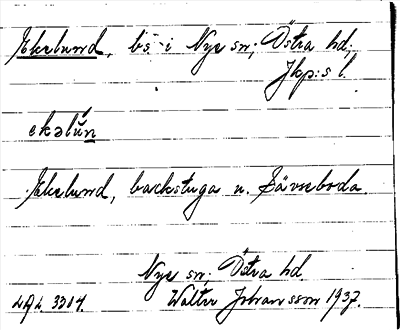 Ekelund, bs i Nye sn; Östra hd;
Jkp:s l.
ekəlún
Ekelund, backstuga u. Sävseboda.
Nye sn; Östra hd.
LAL 3304. Walter Johansson 1937.